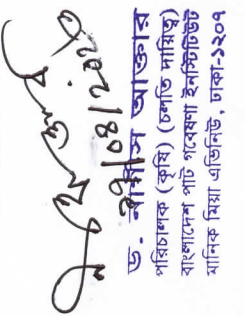 ড. আক্তার
পরিচালক (কৃষি) (চলতি দায়িত্ব)
বাংলাদেশ পাট গবেষণা ইনস্টিটিউট
মানিক মিয়া এভিনিউ, ঢাকা-১২০৭